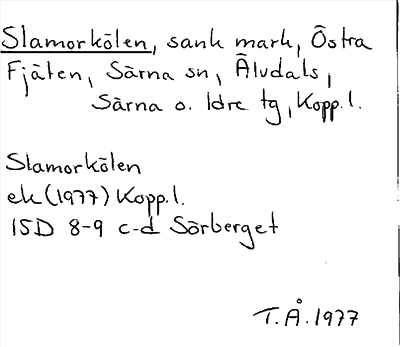 Slamorkölen, sank mark, Östra
Fjäten, Särna sn, Älvdals,
Särna o. Idre tg, Kopp.l.
Slamorkölen
ek (1977) Kopp.l.
15D 8-9 c-d Sörberget
T.Å. 1977